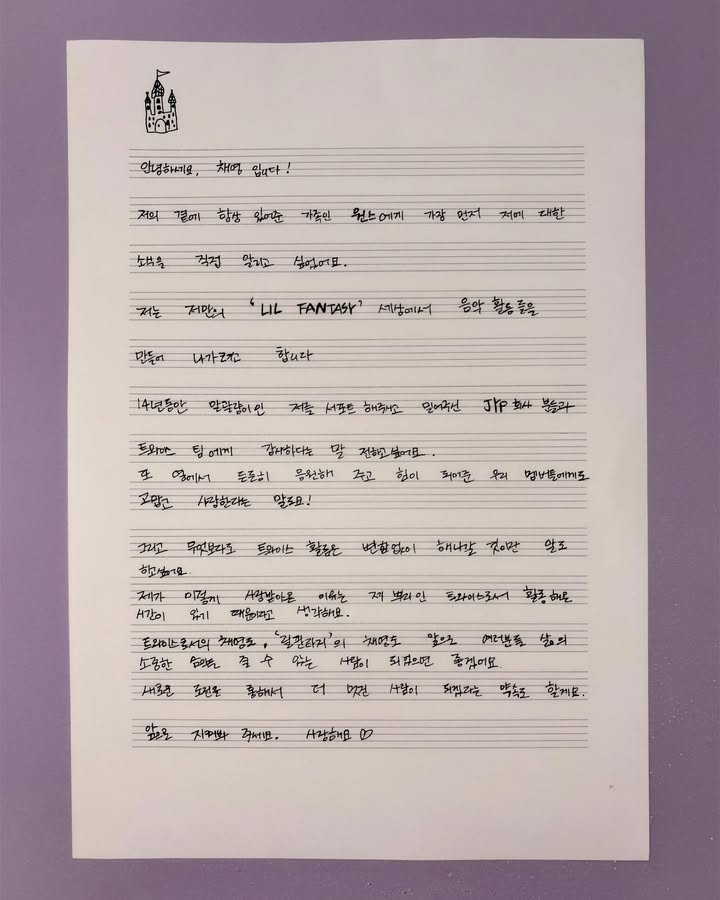 안녕하세요, 채영 입니다!
저의 곁에 항상 있어준 가족인 원스에게 가장 먼저 저에 대한
소식을 직접 알리고 싶었어요.
저는 저만의 'LIL FANTASY' 세상에서 음악 활동들을
만들어 나가려고 합니다
14년동안 말괄량이인 저를 서포트 해주시고 믿어주신 JYP 회사 분들과
트와이스 팀에게 감사하다는 말 전하고싶어요.
또 옆에서 든든히 응원해 주고 힘이 되어준 우리 멤버들에게도
고맙고 사랑한다는 말도요!
그리고 무엇보다도 트와이스 활동은 변함없이 해나갈 것이란 말도
하고싶어요.
제가 이렇게 사랑받아온 이유는 제 뿌리인 트와이스로서 활동해온
시간이 있기 때문이라고 생각해요.
트와이스로서의 채영도, '릴판타지'의 채영도 앞으로 여러분들 삶의
소중한 숨을 줄 수 있는 사람이 되었으면 좋겠어요.
새로운 도전을 통해서 더 멋진 사람이 되겠다는 약속도 할게요.
앞으로 지켜봐 주세요. 사랑해요♡